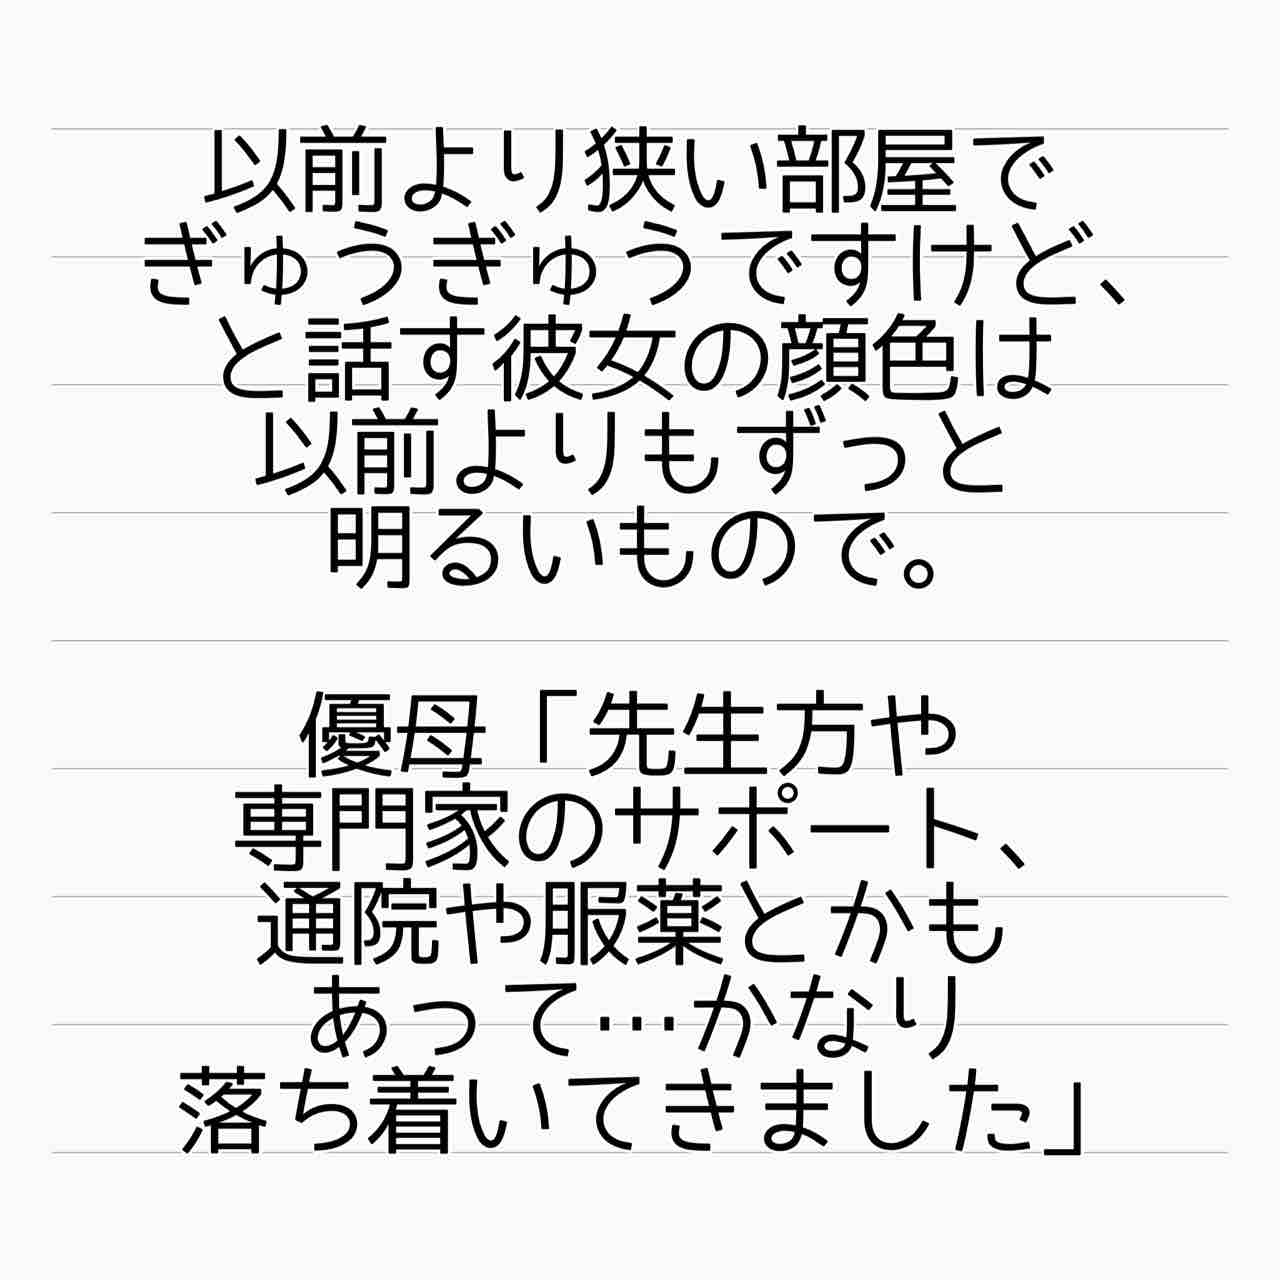 以前より狭い部屋で
ぎゅうぎゅうですけど、
と話す彼女の顔色は
以前よりもずっと
明るいもので。
優母「先生方や
専門家のサポート、
通院や服薬とかも
あって…かなり
落ち着いてきました」